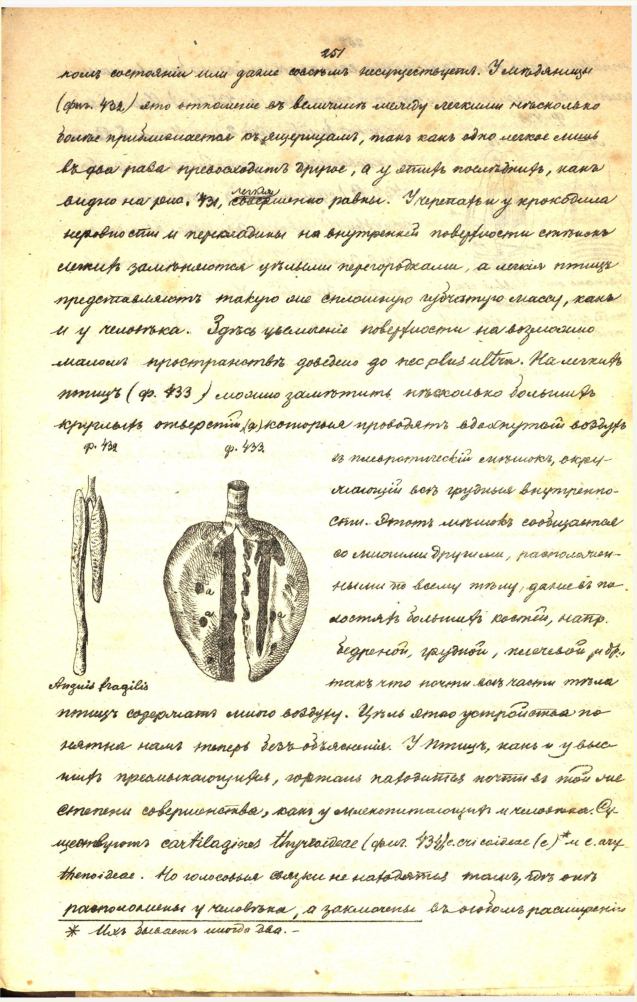 251
номъ состоянiи или даже совсѣмъ несуществуетъ. У мѣдяницы
(фиг. 432) это отношенiе въ величинѣ между легкими нѣсколько
болѣе приближается къ ящерицамъ, такъ какъ одно легкое лишь
въ два раза превосходитъ другое, а у этихъ послѣднихъ, какъ
видно на рис. 431, легкiя совершенно равны. У черепахъ и у крокодила
неровности и перекладины на внутренней поверхности стѣнокъ
легкихъ замѣняются цѣлыми перегородками, а легкiя птицъ
представляютъ такую же сплошную губчатую массу, какъ
и у человѣка. Здѣсь увеличенiе поверхности на возможно
маломъ пространствѣ доведено до nec plus ultra. На легкихъ
птицъ (ф. 433) можно замѣтить нѣсколько большихъ
круглыхъ отверстiй (а) которыя проводятъ вдохнутый воздухъ
ф. 432
ф. 433
въ пневматическiй мѣшокъ, окру-
жающiй всѣ грудныя внутренно-
сти. Этотъ мѣшокъ сообщается
со многими другими, расположен-
ными по всему тѣлу, даже въ по-
лостяхъ большихъ костей, напр.
бедреной, грудной, плечевой и др.
такъ что почти всѣ части тѣла
a
a
Anguis fragilis
птицъ содержатъ много воздуху. Цѣль этого устройства по
нятна намъ теперь безъ объясненiя. У птицъ, какъ и у выс
шихъ пресмыкающихся, гортань находится почти въ той же
степени совершенства, какъ у млекопитающихъ и человѣка. Су-
ществуютъ cartilagines thyreoideae (фиг. 434) c. cricoideae (c)* и c. ary
thenoideae. Но голосовыя связки не находятся тамъ, гдѣ онѣ
расположены у человѣка, а заключены въ особомъ расширенiи
* Ихъ бываетъ иногда два. –